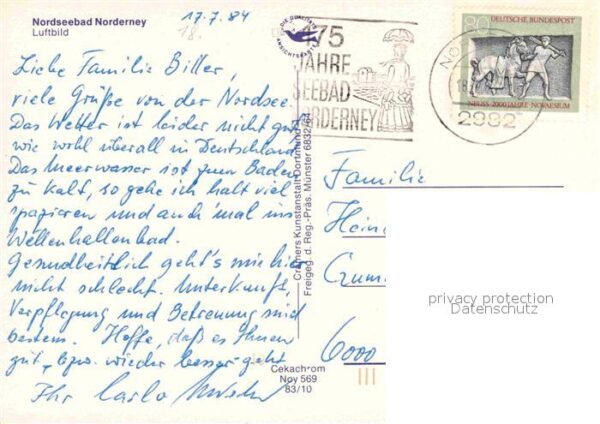 Nordseebad Norderney
Luftbild
17.7.84
18.
175
JAHRE
SEEBAD
NORDERNEY
80
DEUTSCHE BUNDESPOST
NEUSS · 2000 JAHRE NOVAESIUM
2982
Liebe Familie Biller,
viele Grüße von der Nordsee.
Das Wetter ist leider nicht gut
wie wohl überall in Deutschland.
Das Meerwasser ist zum Baden
zu kalt, so gehe ich halt viel
spazieren und auch 'mal ins
Wellenhallenbad.
Gesundheitlich geht's mir hier
nicht schlecht. Unterkunft,
Verpflegung und Betreuung sind
bestens. Hoffe, daß es Ihnen
gut, bzw. wieder besser geht
Ihr
Cramers Kunstanstalt Dortmund
Freigeg. d. Reg.-Präs. Münster 6832/84
Cekachrom
Noy 569
83/10
Familie
Hein
6000
privacy protection
Datenschutz